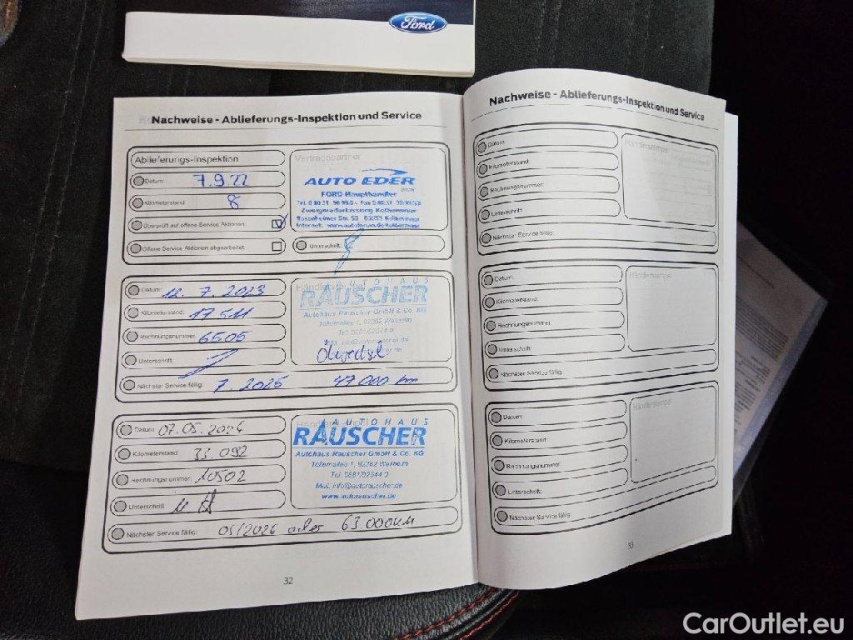 Ford
Nachweise - Ablieferungs-Inspektion und Service
Ablieferungs-Inspektion
Vertragspartner
Datum: 7.9.22
Kilometerstand: 8
Überprüft auf offene Service Aktionen
Offene Service Aktionen abgearbeitet
Unterschrift:
AUTO EDER
FORD-Haupthändler
Zweigniederlassung Kolbermoor
Datum: 12.7.2023
Kilometerstand: 17511
Rechnungsnummer: 6505
Unterschrift:
Nächster Service fällig: 7.2025 47000 km
AUTOHAUS
RAUSCHER
Autohaus Rauscher GmbH & Co. KG
Datum: 07.05.2024
Kilometerstand: 33 092
Rechnungsnummer: 10502
Unterschrift:
Nächster Service fällig: 05/2026 oder 63 000 km
AUTOHAUS
RAUSCHER
Autohaus Rauscher GmbH & Co. KG
Mail. info@autorauscher.de
www.autorauscher.de
32
Nachweise - Ablieferungs-Inspektion und Service
Datum:
Kilometerstand:
Rechnungsnummer:
Unterschrift:
Nächster Service fällig:
Händlerstempel
Datum:
Kilometerstand:
Rechnungsnummer:
Unterschrift:
Nächster Service fällig:
Händlerstempel
Datum:
Kilometerstand:
Rechnungsnummer:
Unterschrift:
Nächster Service fällig:
Händlerstempel
33
CarOutlet.eu